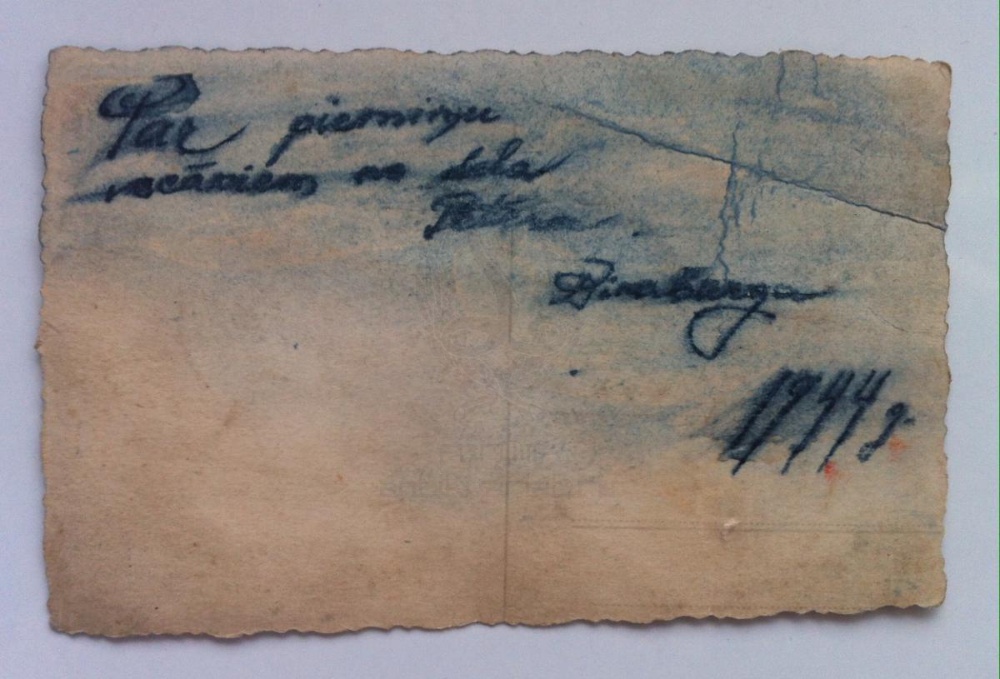 Par piemiņu
vecākiem no dēla
Pētera
Dinsberga
1944 g.